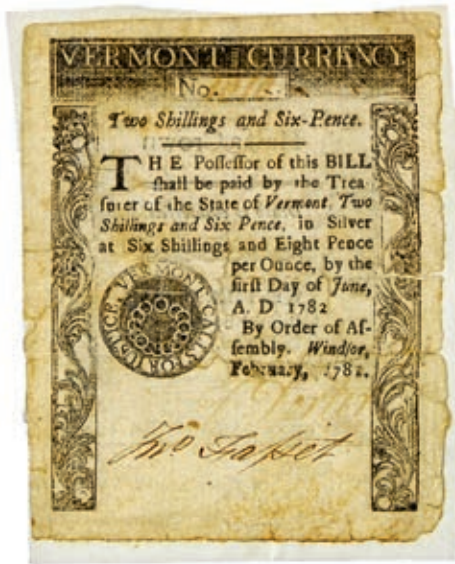 VERMONT CURRENCY
No.
Two Shillings and Six-Pence.
THE Poſſeſſor of this BILL
ſhall be paid by the Trea
ſurer of the State of Vermont, Two
Shillings and Six Pence, in Silver
at Six Shillings and Eight Pence
per Ounce, by the
firſt Day of June,
A. D 1782
By Order of Aſ-
ſembly. Windſor,
February, 1781.
VERMONT CALLS FOR JUSTICE.
Jno Faſset